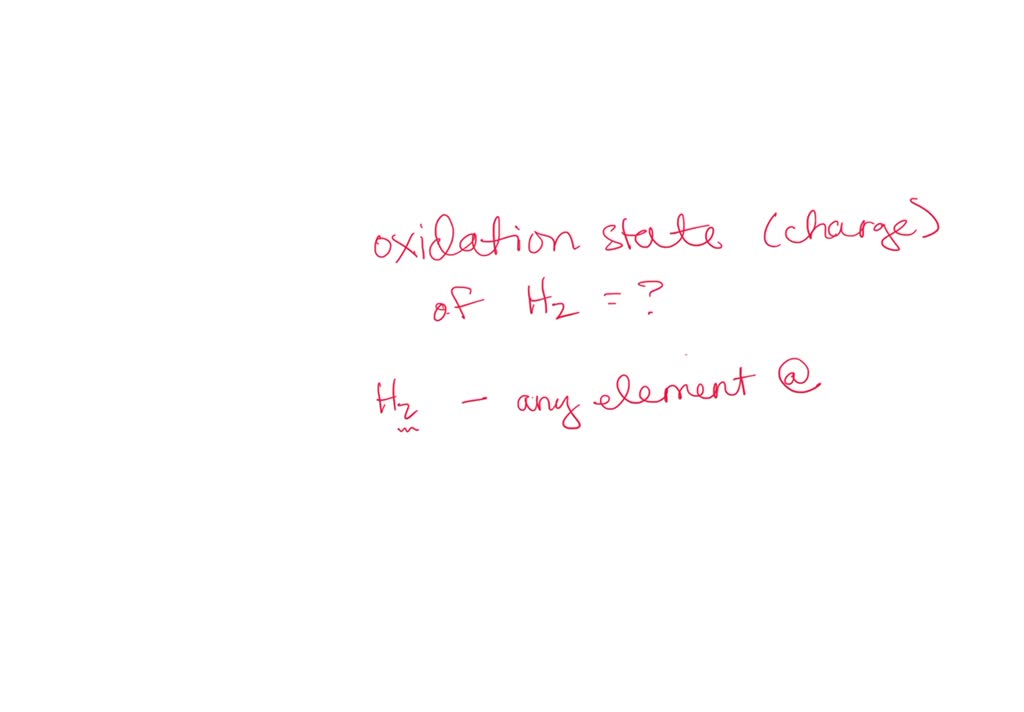 oxidation state (charge)
of H2 = ?
H2 - any element @